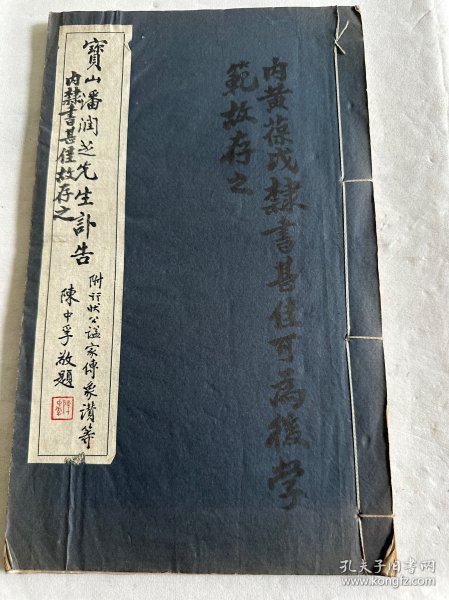 内黄葆戉隸書甚佳可為後學
範故存之
寶山潘潤之先生訃告
内隸書甚佳故存之
附行狀公誄家傳象讚等
陳中孚敬題
孔夫子旧书网
www.kongfz.com